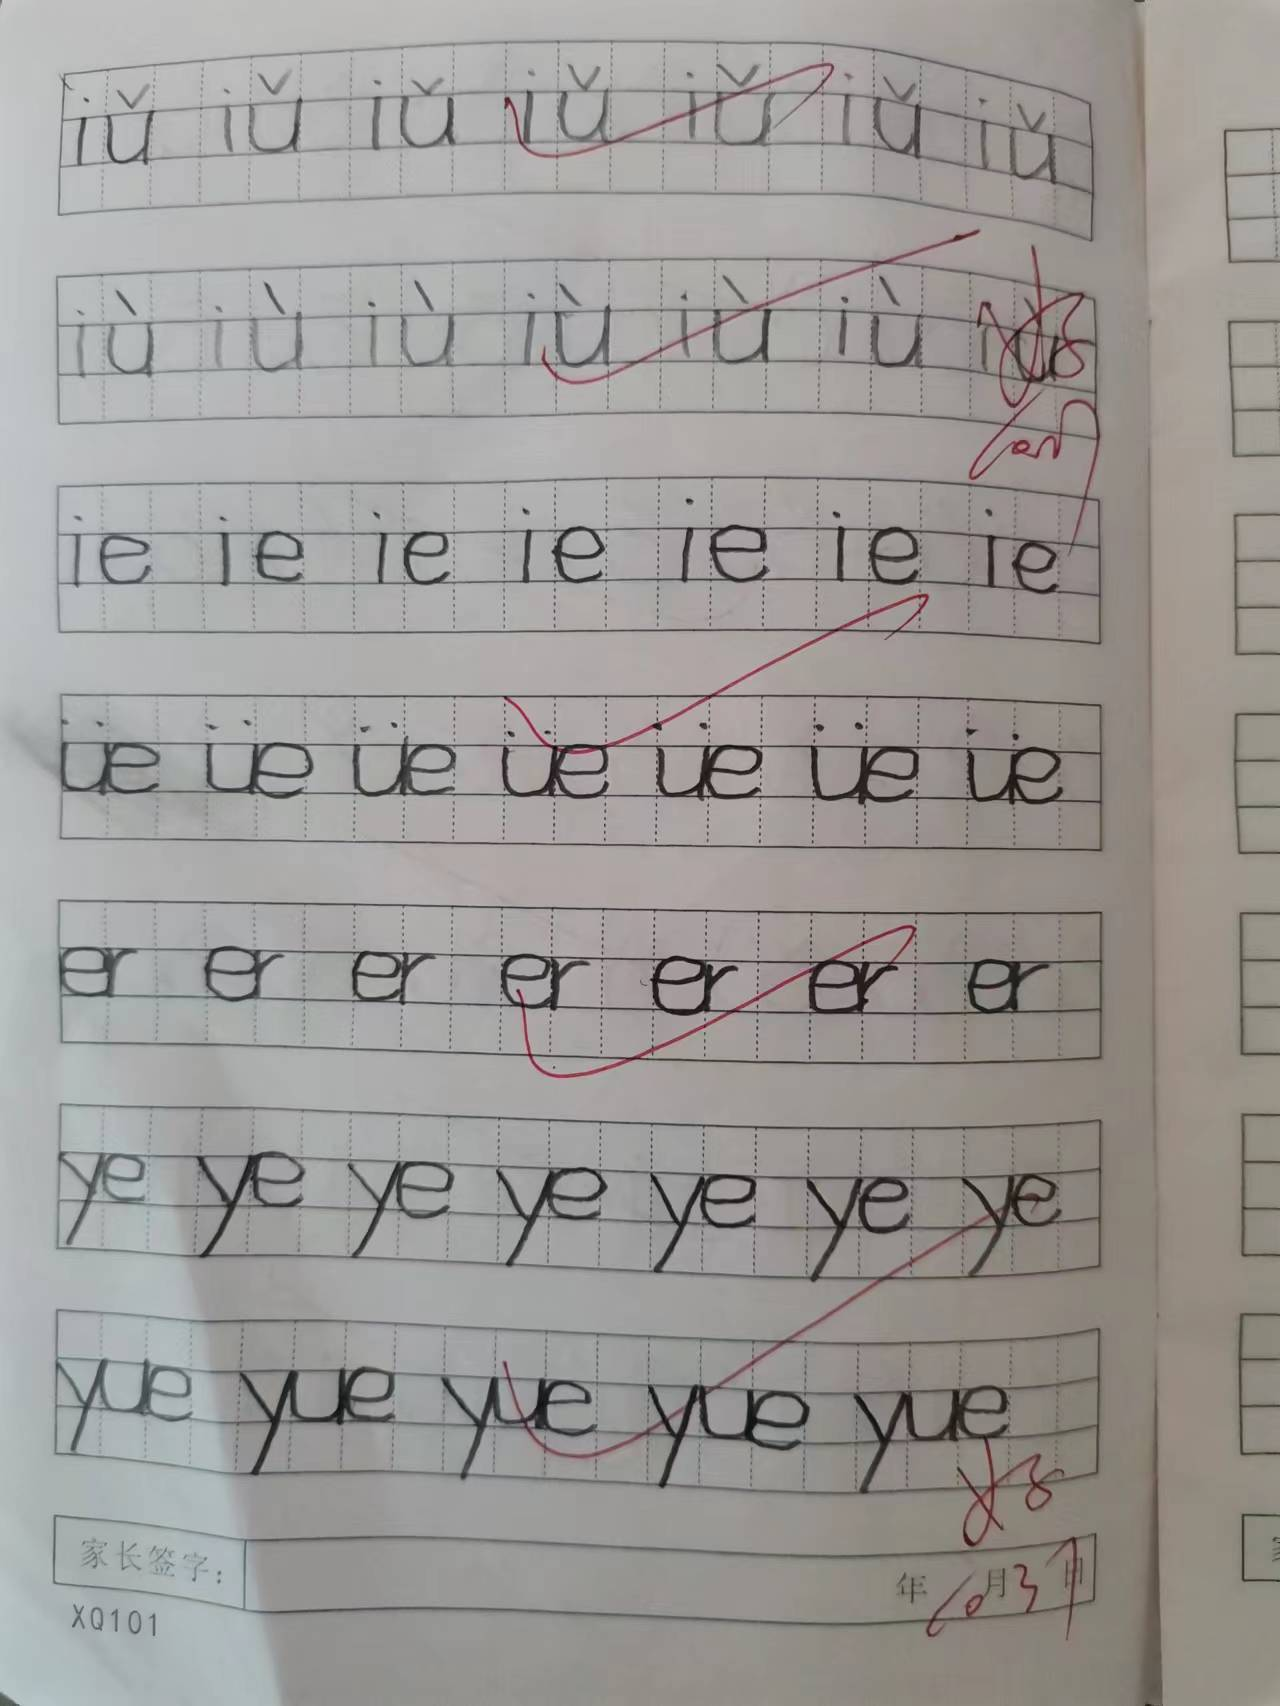 iǔ iǔ iǔ iǔ iǔ iǔ iǔ
iù iù iù iù iù iù
ie ie ie ie ie ie ie
üe üe üe üe üe üe üe
er er er er er er er
ye ye ye ye ye ye ye
yue yue yue yue yue
家长签字： 年 月 日
XQ101